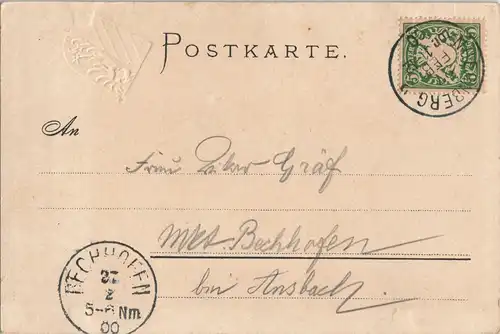 POSTKARTE.
BERG
FEB
An
Frau
Gräf
Mkt. Bechhofen
bei Ansbach
BECHHOFEN
2
5-6 Nm
00